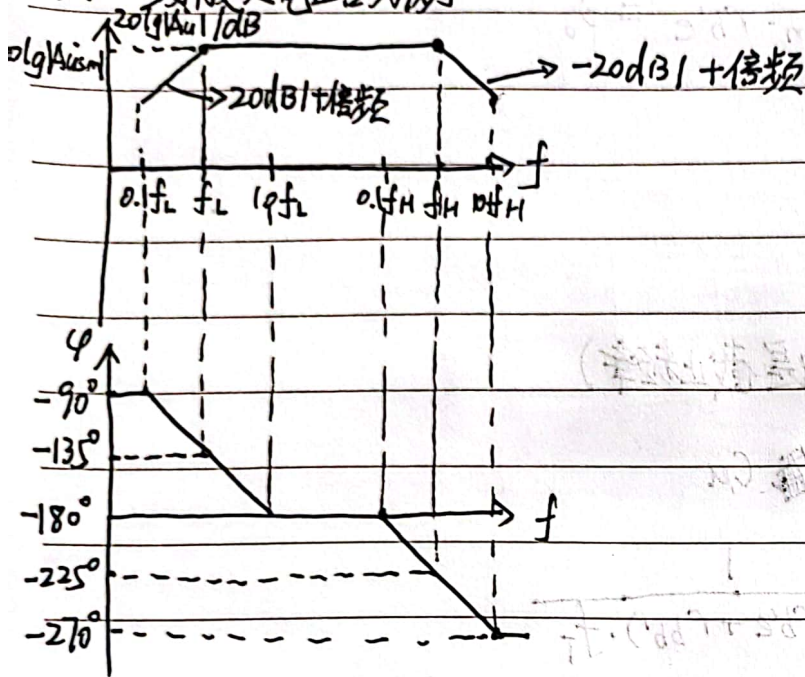 20lg|Au|/dB
0lg|Ausm|
→ -20dB|+倍频
→20dB|+倍频
f
0.1fL fL 10fL 0.1fH fH 10fH
φ
-90°
-135°
-180°
f
-225°
-270°